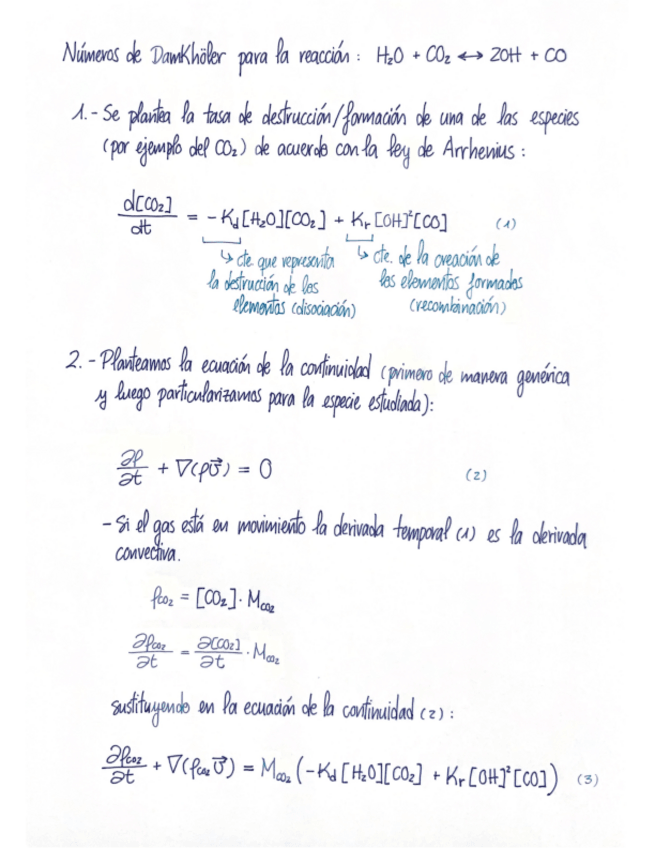 Números de DamKhöler para la reacción: H₂O + CO₂ ↔ 2OH + CO
1.- Se plantea la tasa de destrucción/formación de una de las especies
(por ejemplo del CO₂) de acuerdo con la ley de Arrhenius:
d[CO₂]/dt = - K_d [H₂O][CO₂] + K_r [OH]²[CO] (1)
↳ cte que representa la destrucción de los elementos (disociación)
↳ cte. de la creación de los elementos formados (recombinación)
2.- Planteamos la ecuación de la continuidad (primero de manera genérica
y luego particularizamos para la especie estudiada):
∂ρ/∂t + ∇(ρv⃗) = 0 (2)
- Si el gas está en movimiento la derivada temporal (1) es la derivada
convectiva.
ρco₂ = [CO₂]·Mco₂
∂ρco₂/∂t = ∂[CO₂]/∂t · Mco₂
sustituyendo en la ecuación de la continuidad (2):
∂ρco₂/∂t + ∇(ρco₂ v⃗) = Mco₂ (-K_d [H₂O][CO₂] + K_r [OH]²[CO]) (3)